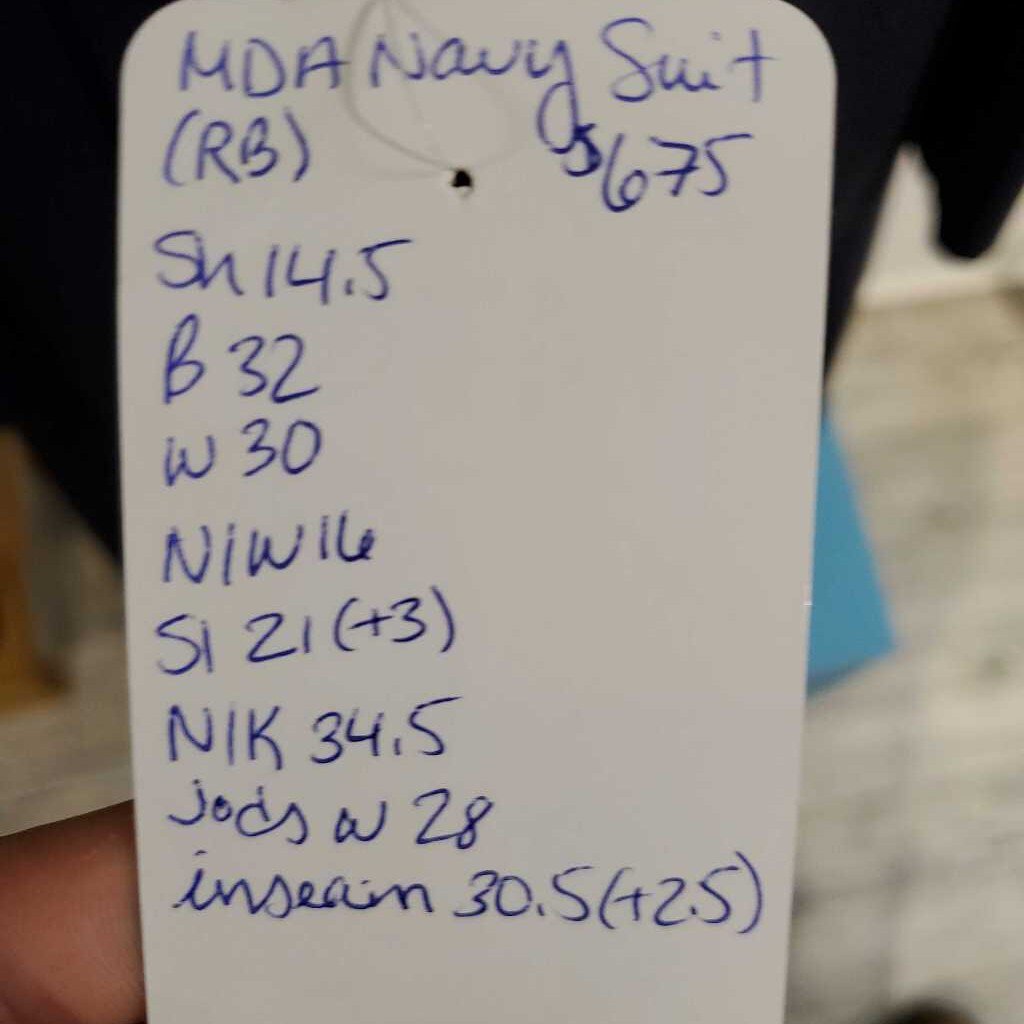 MDA Navy Suit
(RB) $675
Sh 14.5
B 32
W 30
N/W 16
Sl 21 (+3)
N/K 34.5
jods w 28
inseam 30.5 (+2.5)